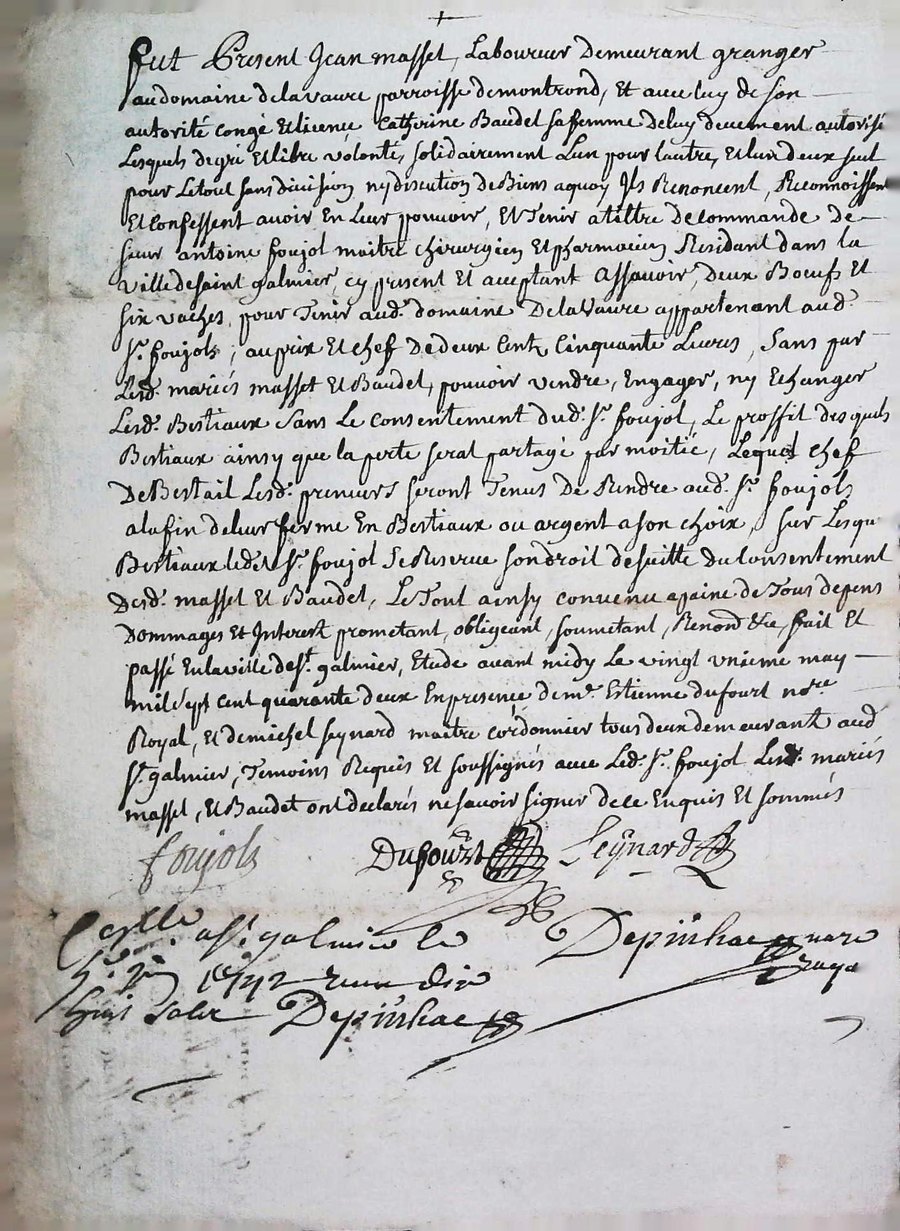 fut Present Jean masset, Laboureur Demeurant granger
au domaine delavaure parroisse demontrond, Et avec luy de son
autorité congé Et licence Catherine Baudet sa femme De luy deuement autorisé
Lesquels de gré Et libre volonté, solidairement L'un pour l'autre, Et l'un deux seul
pour Letout sans division ny discution de Biens aquoy Ils Renoncent, Reconnoissent
Et Confessent avoir En Leur pouvoir, Et Tenir a tiltre De commande de
sieur antoine foujol maitre chirurgien Et pharmacien Residant dans la
ville de saint galmier, cy present Et aceptant Assavoir, Deux Boeufs Et
six vaches, pour Tenir aud. domaine Delavaure appartenant aud.
Sr. foujols, au prix Et chef De deux Cent Cinquante Livres, Sans par
Lesd. mariés masset Et Baudet, pouvoir vendre, Engager, ny Echanger
Lesd. Bestiaux sans Le consentement dud. Sr. foujol, Le proffit desquels
Bestiaux ainsy que la perte serat partagé par moitié, Lequel chef
De Bestail Lesd. preneurs seront Tenus De Rendre aud. Sr. foujols
a la fin de leur ferme En Bestiaux ou argent a son choix, sur Lesqu
Bestiaux led. Sr. foujol Se Reserve son droit de suitte Du Consentement
Desd. masset Et Baudet, Le Tout ainsy convenu apaine de Tous depens
Dommages Et Interest prometant, obligeant, soumetant, Renond &ce, fait Et
passé En la ville de St. galmier, Etude avant midy Le vingt unieme may
mil sept cent quarante deux En presence de me. Estienne dufourt nore
Royal, Et de michel seynard maitre cordonnier tous deux demeurant aud
St. galmier, Temoins Requis Et soussignés avec Led. Sr. foujol Lesd. mariés
masset, Et Baudet ont declarés ne savoir signer de ce Enquis Et sommés
foujols Dufourt Seynard
a St. galmier le
Depinhac
1742
Depinhac